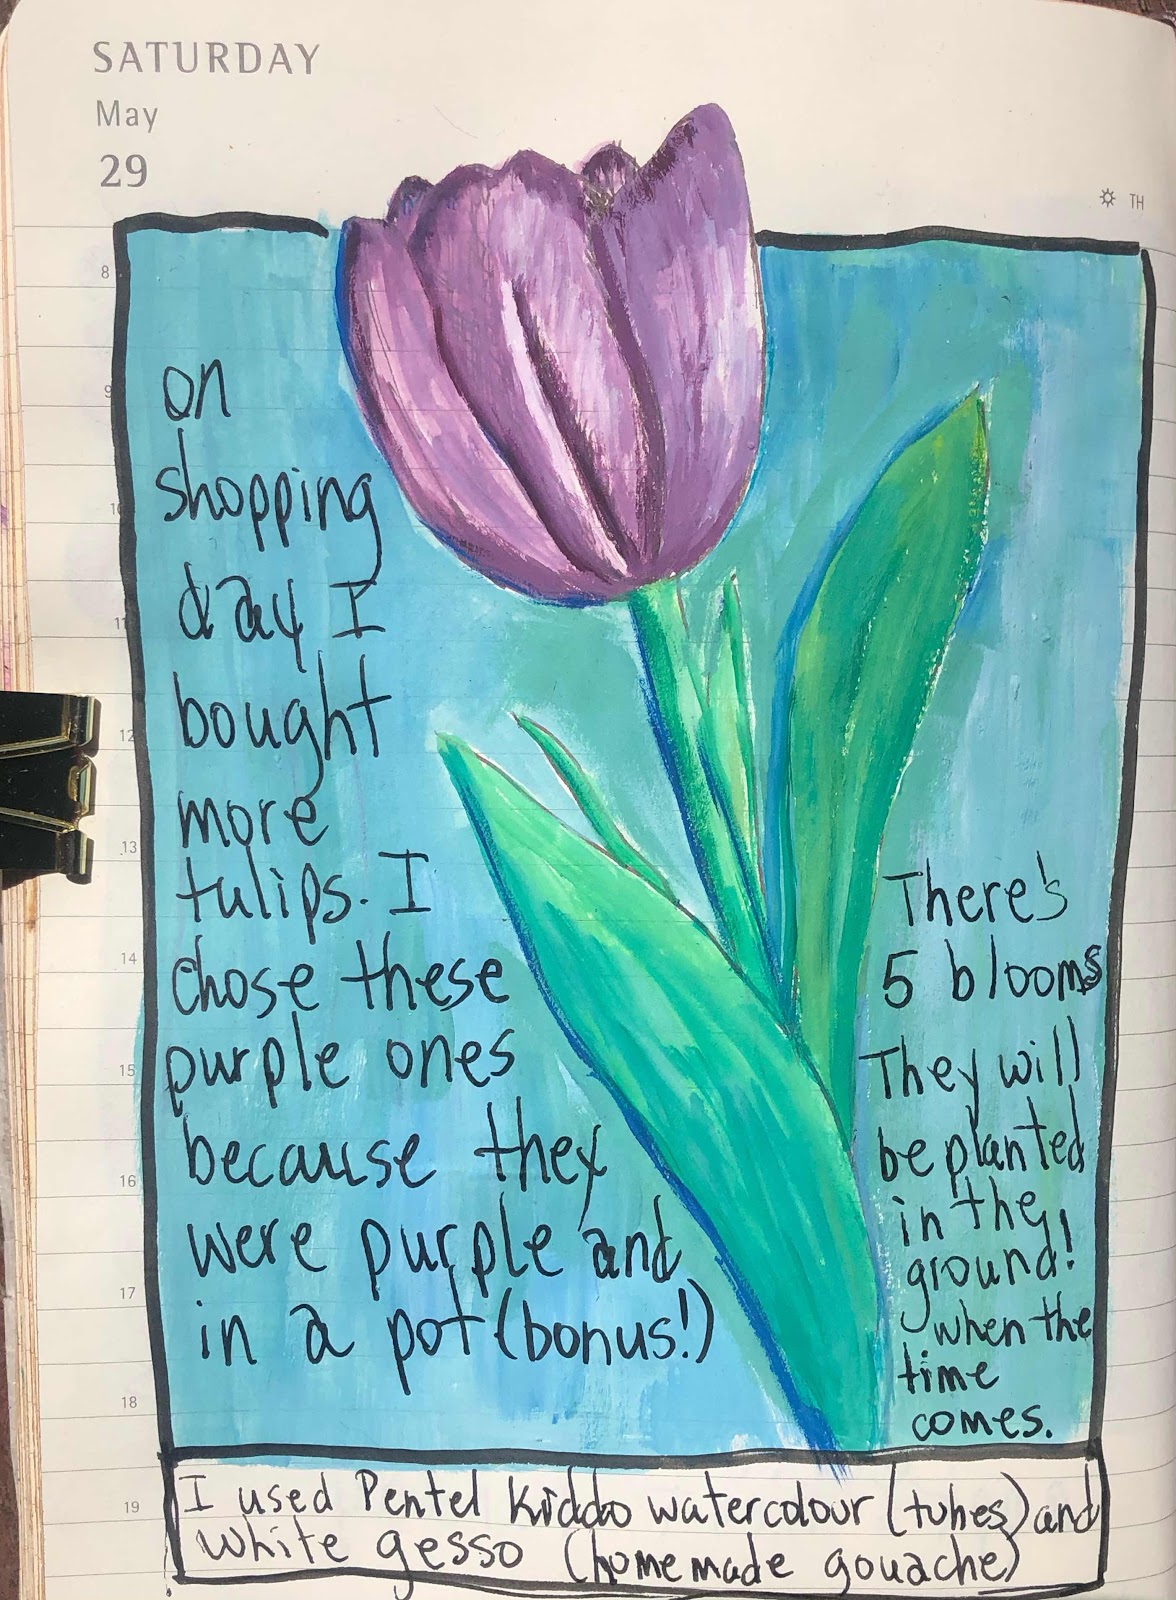 SATURDAY
May
29
TH
8
9
10
11
12
13
14
15
16
17
18
19
on
shopping
day I
bought
more
tulips. I
chose these
purple ones
because they
were purple and
in a pot (bonus!)
There's
5 blooms
They will
be planted
in the
ground!
when the
time
comes.
I used Pentel Kiddo watercolour (tubes) and
white gesso (homemade gouache)